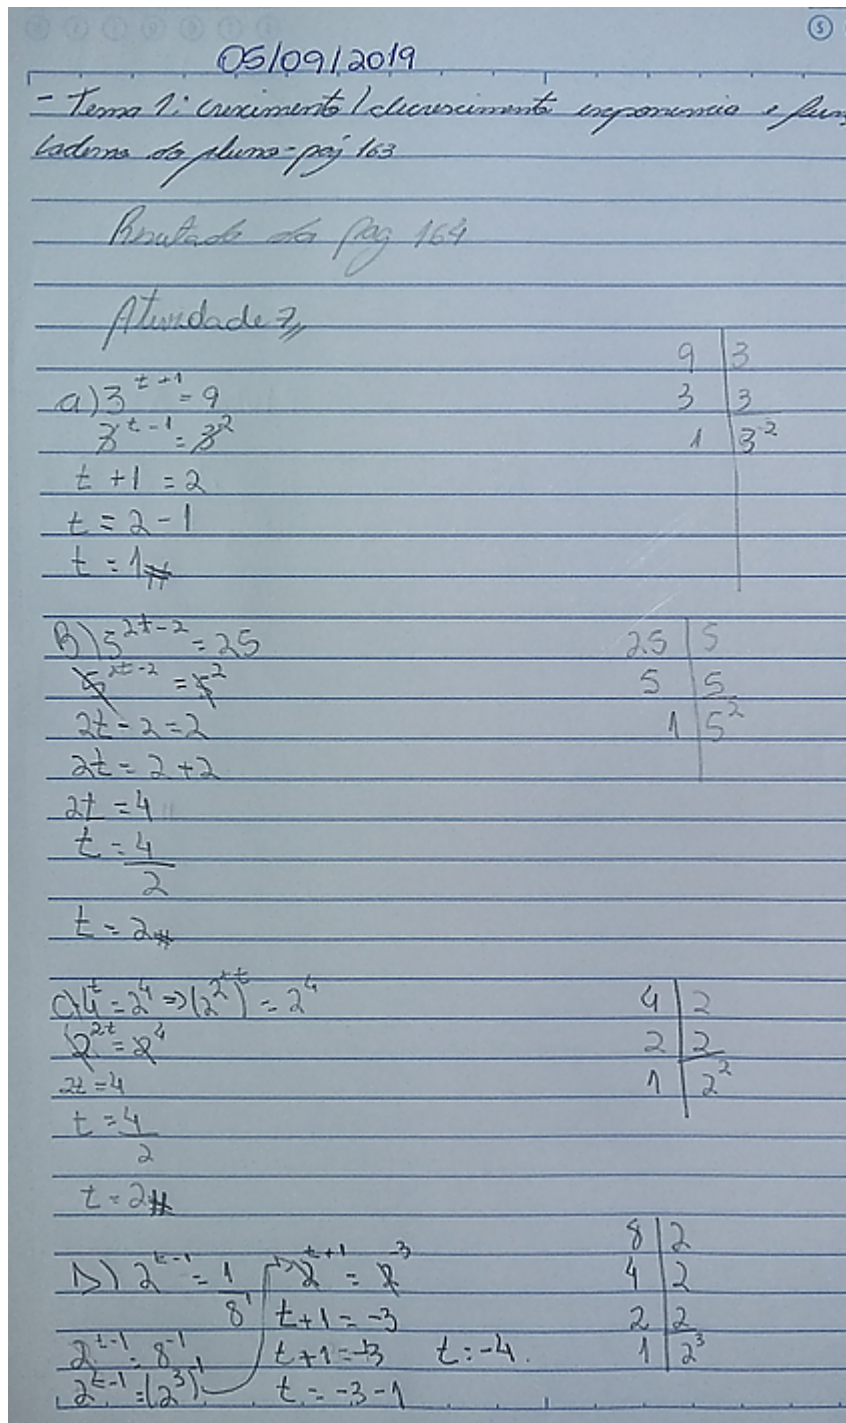 05/09/2019
- Tema 1: crescimento / decrescimento exponencia e fun
Caderno do aluno - pág 163
Resultado da pag 164
Atividade 7
a) 3^{t+1} = 9
3^{t-1} = 3^2
t + 1 = 2
t = 2 - 1
t = 1
9 | 3
3 | 3
1 | 3^2
B) 5^{2t-2} = 25
5^{2t-2} = 5^2
2t - 2 = 2
2t = 2 + 2
2t = 4
t = 4/2
t = 2
25 | 5
5 | 5
1 | 5^2
C) 4^t = 2^4 => (2^2)^t = 2^4
2^{2t} = 2^4
2t = 4
t = 4/2
t = 2
4 | 2
2 | 2
1 | 2^2
D) 2^{t-1} = 1/8^1
2^{t-1} = 8^{-1}
2^{t-1} = (2^3)^{-1}
2^{t+1} = 2^{-3}
t + 1 = -3
t + 1 = -3 t = -4.
t = -3 - 1
8 | 2
4 | 2
2 | 2
1 | 2^3